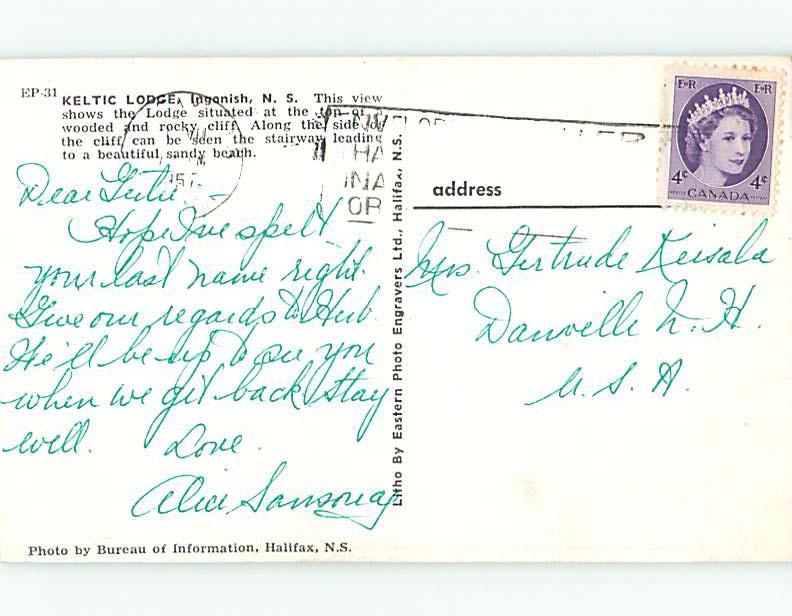 EP-31
KELTIC LODGE, Ingonish, N. S. This view
shows the Lodge situated at the top of a
wooded and rocky cliff. Along the side of
the cliff can be seen the stairway leading
to a beautiful sandy beach.
Dear Gertie -
Hope I've spelt
your last name right.
Give our regards to Hub.
We'll be up to see you
when we git back. Stay
well. Love.
Alice
Litho By Eastern Photo Engravers Ltd., Halifax, N.S.
E II R
E II R
4¢
4¢
CANADA
address
Mrs. Gertrude Keisala
Danville N. H.
U. S. A.
Photo by Bureau of Information, Halifax, N.S.